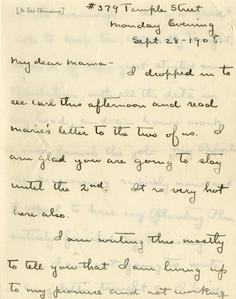 [to Lea Thompson]
#379 Temple Street
Monday Evening
Sept. 28-1905.
My dear mama-
I dropped in to
see Carl this afternoon and read
marie's letter to the two of us. I
am glad you are going to stay
until the 2nd. It is very hot
here also.
I am writing this mostly
to tell you that I am living up
to my promise and not working